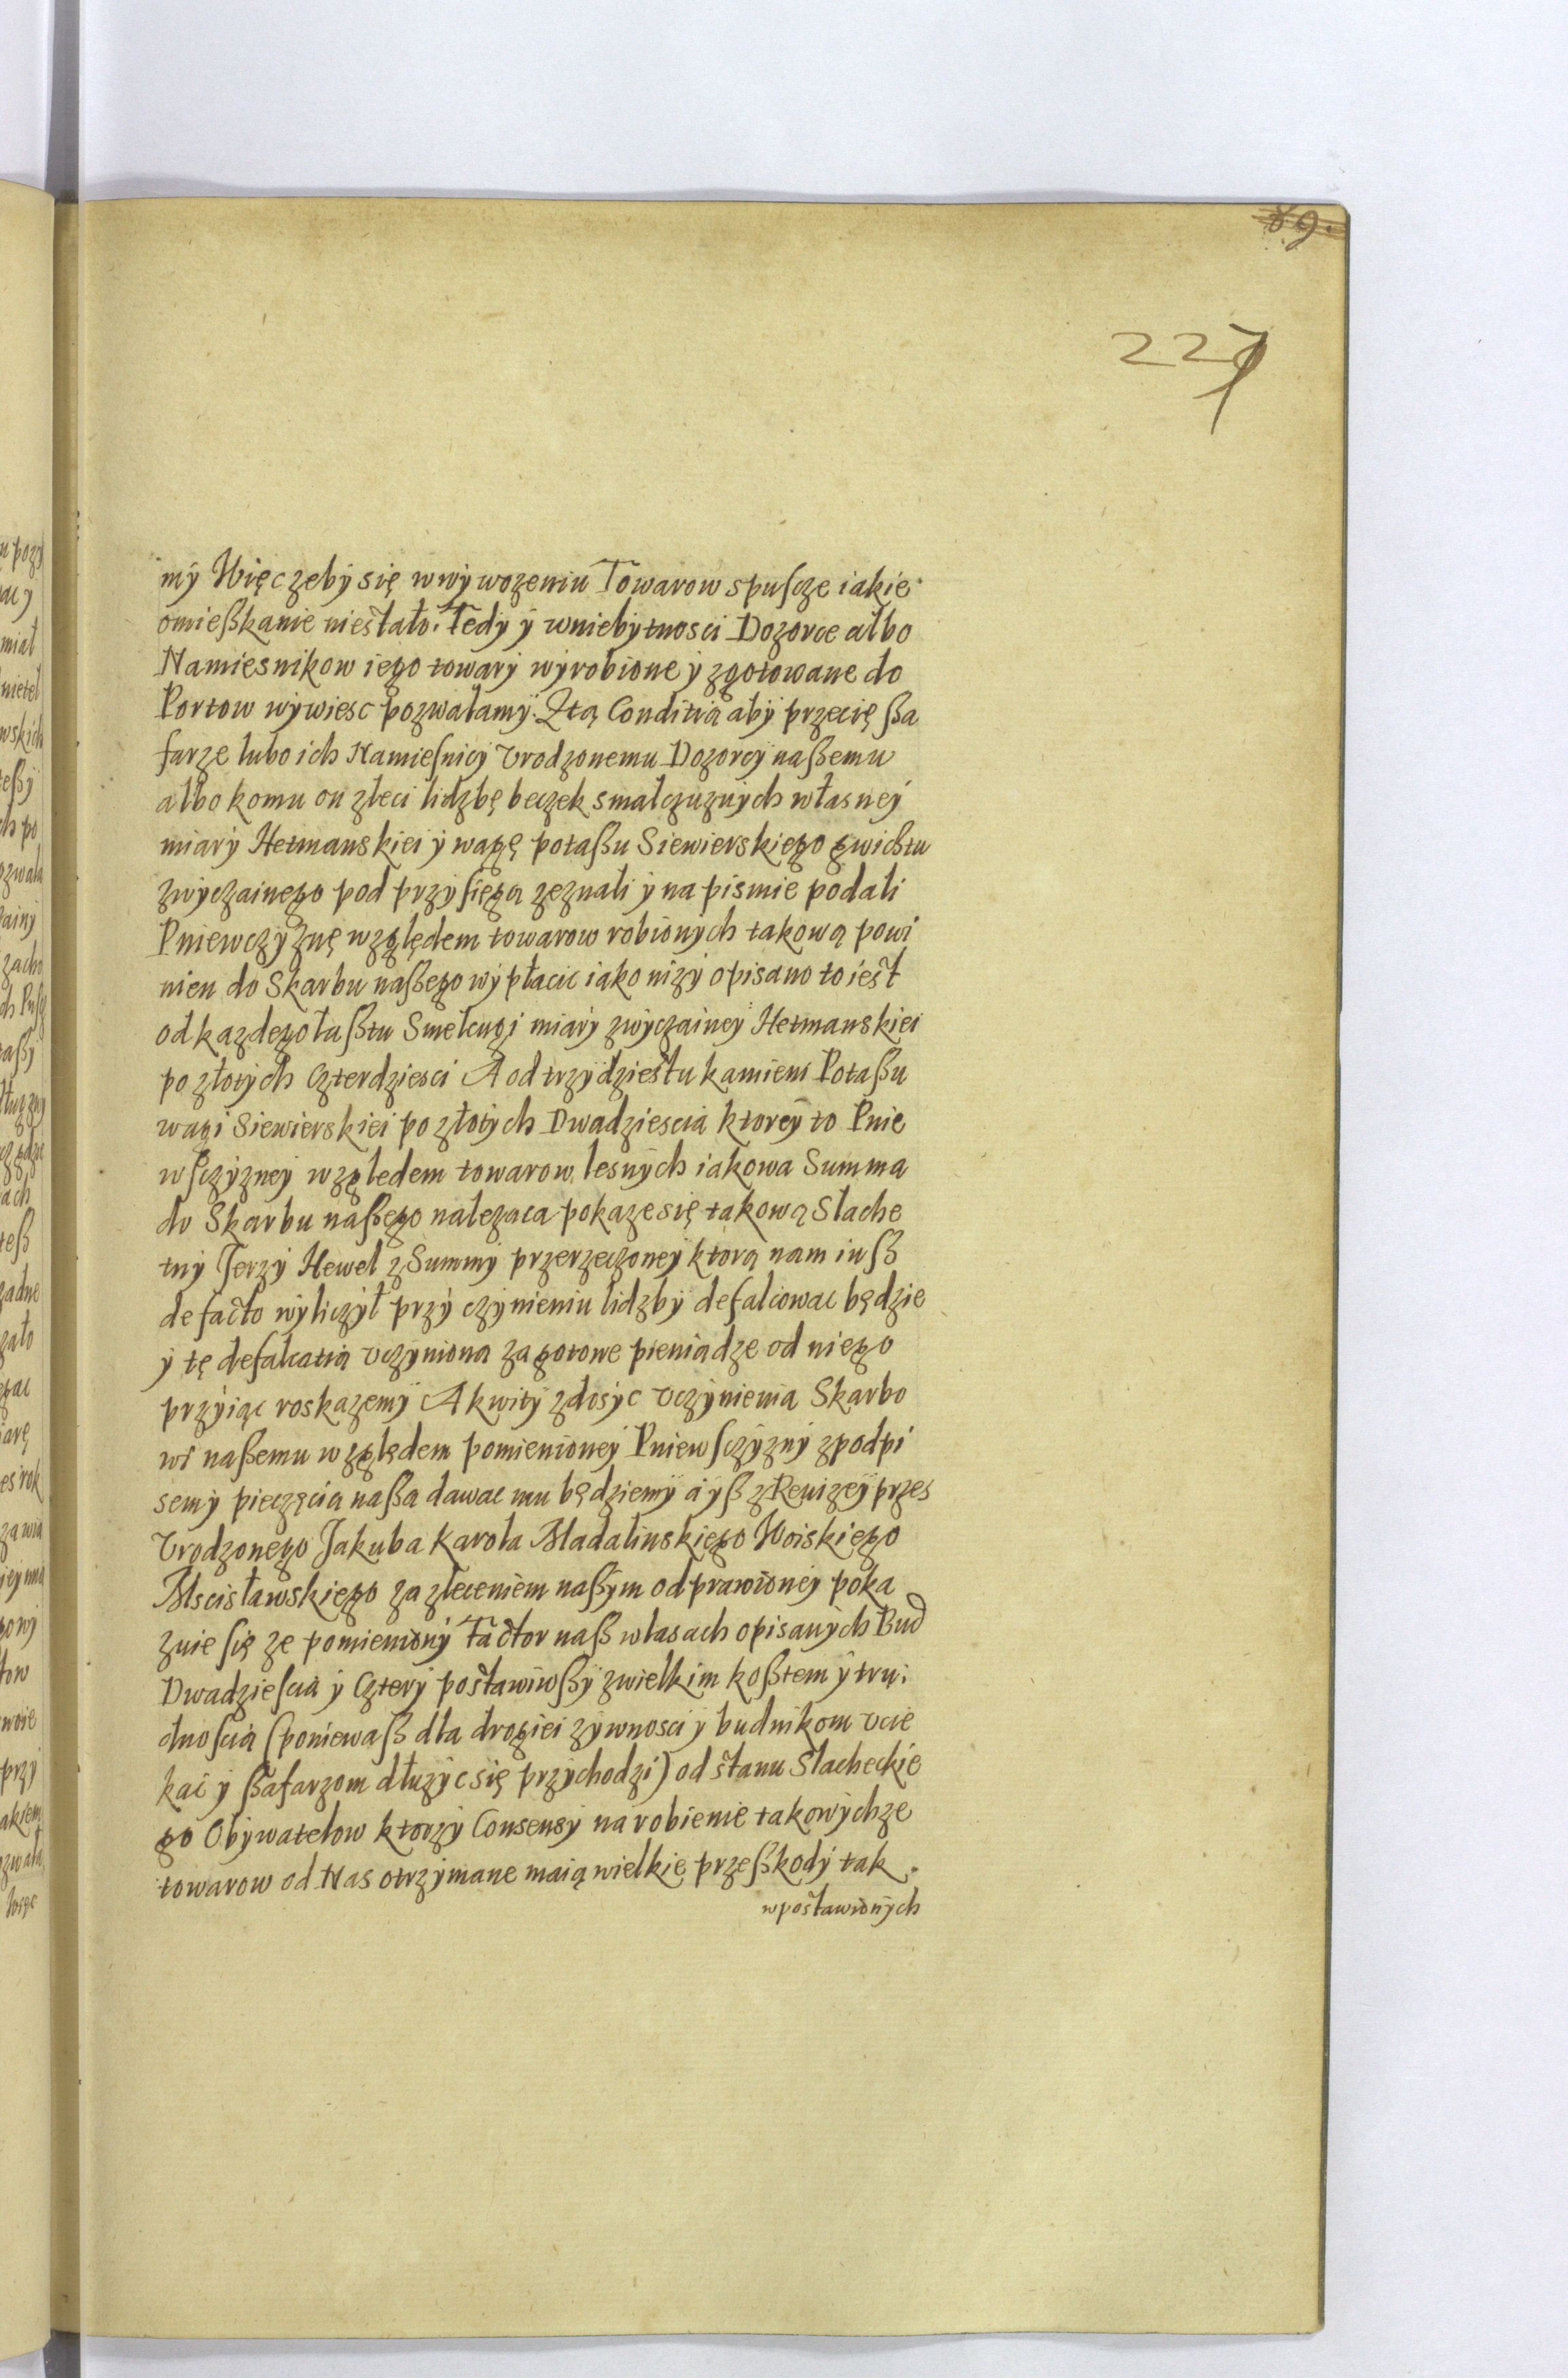 89.
227
mÿ Więc zebÿ się wwÿwozeniu Towarow spuscze iakie
omießkanie niestało. Tedÿ ÿ wniebytnosci Dozorce albo
Namiesnikow iego towarÿ wÿrobione ÿ zgotowane do
Portow wÿwiesc pozwalamÿ. Ztą Conditią abÿ przecię ßa
farze lubo ich Namiesnicÿ Vrodzonemu Dozorcÿ naßemu
albo komu on zleci lidzbę beczek smalczuznÿch własneÿ
miarÿ Hetmanskiei ÿ wagę potaßu Siewierskiego gwichtu
zwÿczainego pod przÿsięgą zeznali ÿ na pismie podali
Pniewczÿznę względem towarow robionÿch takową powi
nien do Skarbu naßego wÿpłacic iako nizÿ opisano to iest
od kazdego łaßtu Smelcugi miarÿ zwÿczaineÿ Hetmanskiei
po złotÿch Czterdziesci A od trzÿdziestu kamieni Potaßu
wagi Siewierskiei po złotÿch Dwadziescia ktoreÿ to Pnie
wsczÿzneÿ względem towarow lesnÿch iakowa Summa
do Skarbu naßego nalezaca pokaze się takową Slache
tnÿ Jerzÿ Hewel z Summÿ przerzeczoneÿ ktorą nam iuß
de facto wÿliczÿł przÿ czÿnieniu lidzbÿ defalcowac będzie
ÿ tę defalcatią vczÿniona za gotowe pieniądze od niego
przÿiąc roskazemÿ A kwitÿ zdosÿc vczÿnienia Skarbo
wi naßemu względem pomienioneÿ Pniewsczÿznÿ zpodpi
semÿ pieczęcią naßa dawac mu będziemÿ a ÿß z Rewizeÿ przes
Vrodzonego Jakuba Karola Madalinskiego Woiskiego
Mscisławskiego za zleceniem naßÿm odprawioneÿ poka
zuie się ze pomienionÿ Factor naß wlasach opisanÿch Bud
Dwadziescia ÿ Czterÿ postawiwßÿ zwielkim koßtem ÿ tru
dnoscią (poniewaß dla drogiei zÿwnosci ÿ budnikom vcie
kac ÿ ßafarzom dłuzÿc się przÿchodzi) od stanu Slacheckie
go Obÿwatelow ktorzÿ Consensÿ na robienie takowÿchze
towarow od Nas otrzÿmane maią wielkie przeßkodÿ tak
wpostawionÿch